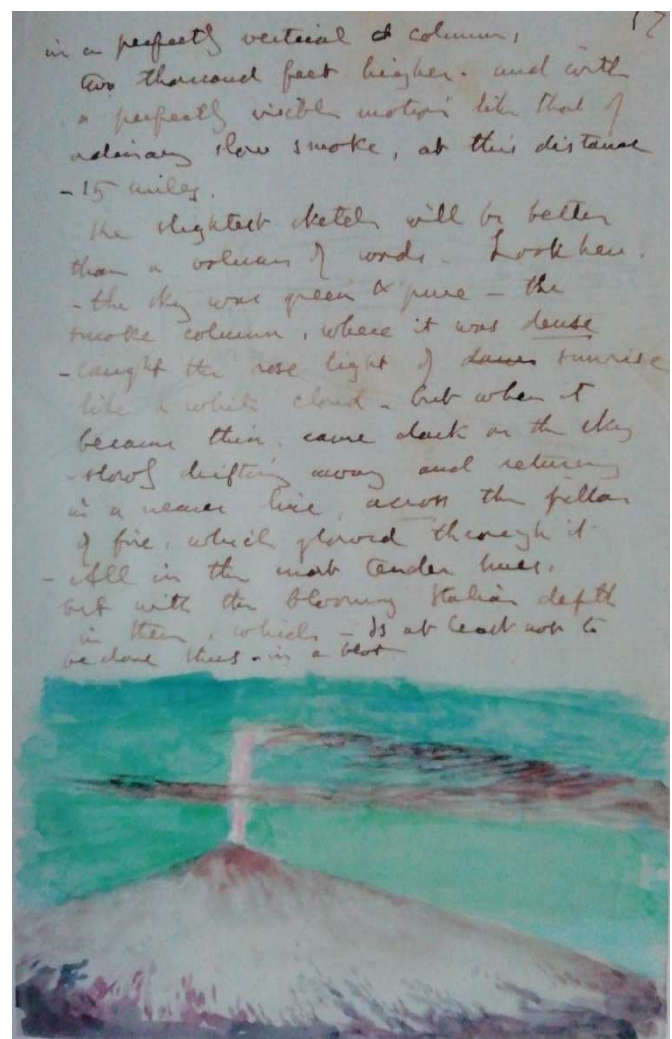 17
in a perfectly vertical column,
two thousand feet higher. and with
a perfectly visible motion like that of
ordinary slow smoke, at this distance
- 15 miles.
The slightest sketch will be better
than a volume of words - Look here.
- the sky was green & pure - the
smoke column, where it was dense
- caught the rose light of sunrise
like a white cloud - but when it
became thin, came dark on the sky
- slowly drifting away and returning
in a nearer line, across the pillar
of fire, which glowed through it
- All in the most tender hues.
but with the blooming Italian depth
in them, which - Is at least not to
be done thus - in a blot